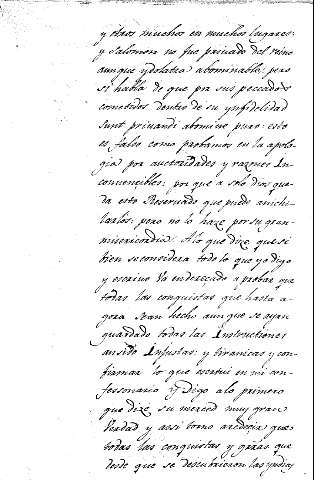 y otros muchos en muchos lugares:
y Salomon no fue priuado del reino
aunque ydolatra abominable: pero
si habla de que por sus peccados
cometidos dentro de su ynfidelidad
sunt priuandi dominio puro: esto
es falso como probamos en la apolo-
gia por auctoridades y razones In-
conuencibles: por que a solo dios que-
da esto Reseruado que puede anichi-
larlos: pero no lo haze por su gran
misericordia. A lo que dize que si
bien se considera todo lo que yo digo
y escriuo Va enderecado a probar que
todas las conquistas que hasta a-
gora Sean hecho aun que se ayan
guardado todas las Instructiones
an sido Injustas: y tiranicas y con-
firmar lo que escriui en mi con-
fessonario y Digo a lo primero
que dize su merced muy gran
Verdad y assi torno a redezir que
todas las conquistas y guerras que
desde que se descubrieron las yndias